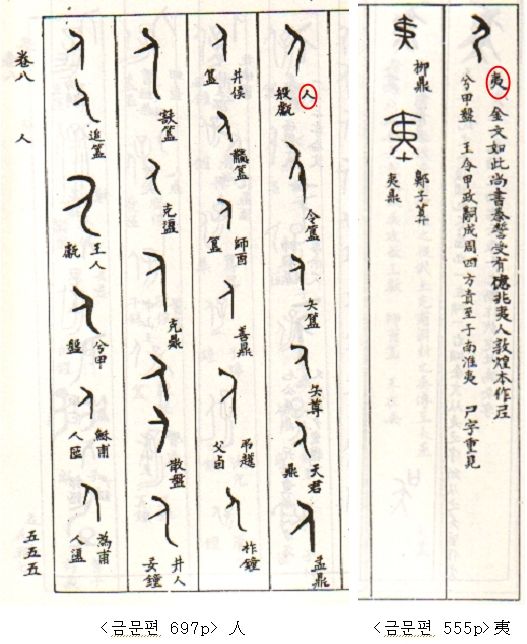 人
般甗
令簋
夨簋
夨尊
天君
鼎
盂鼎
井侯
簋
師酉
簋
善鼎
弔趯
父卣
柞鐘
㝬簋
克盨
克鼎
散盤
井人
妄鐘
追簋
王人
甗
兮甲
盤
穌甫
人匜
為甫
人盨
卷八 人 五五五
夷 金文如此尚書泰誓受有億兆夷人敦煌本作𡰥
兮甲盤 王令甲政𤔲成周四方責至于南淮夷 尸字重見
柳鼎
鄭子
夷鼎
<금문편 697p> 人
<금문편 555p> 夷